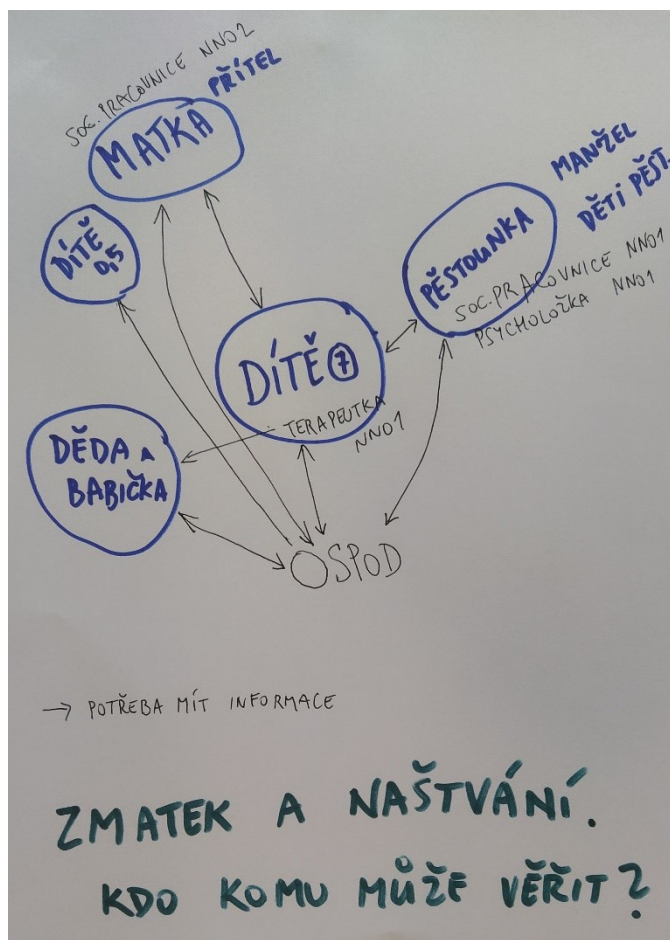 SOC. PRACOVNICE NNO2
PŘÍTEL
MATKA
MANŽEL
DĚTI PĚST.
DÍTĚ
0,5
PĚSTOUNKA
SOC. PRACOVNICE NNO1
PSYCHOLOŽKA NNO1
DÍTĚ 7
TERAPEUTKA
NNO1
DĚDA A
BABIČKA
OSPOD
→ POTŘEBA MÍT INFORMACE
ZMATEK A NAŠTVÁNÍ.
KDO KOMU MŮŽE VĚŘIT?